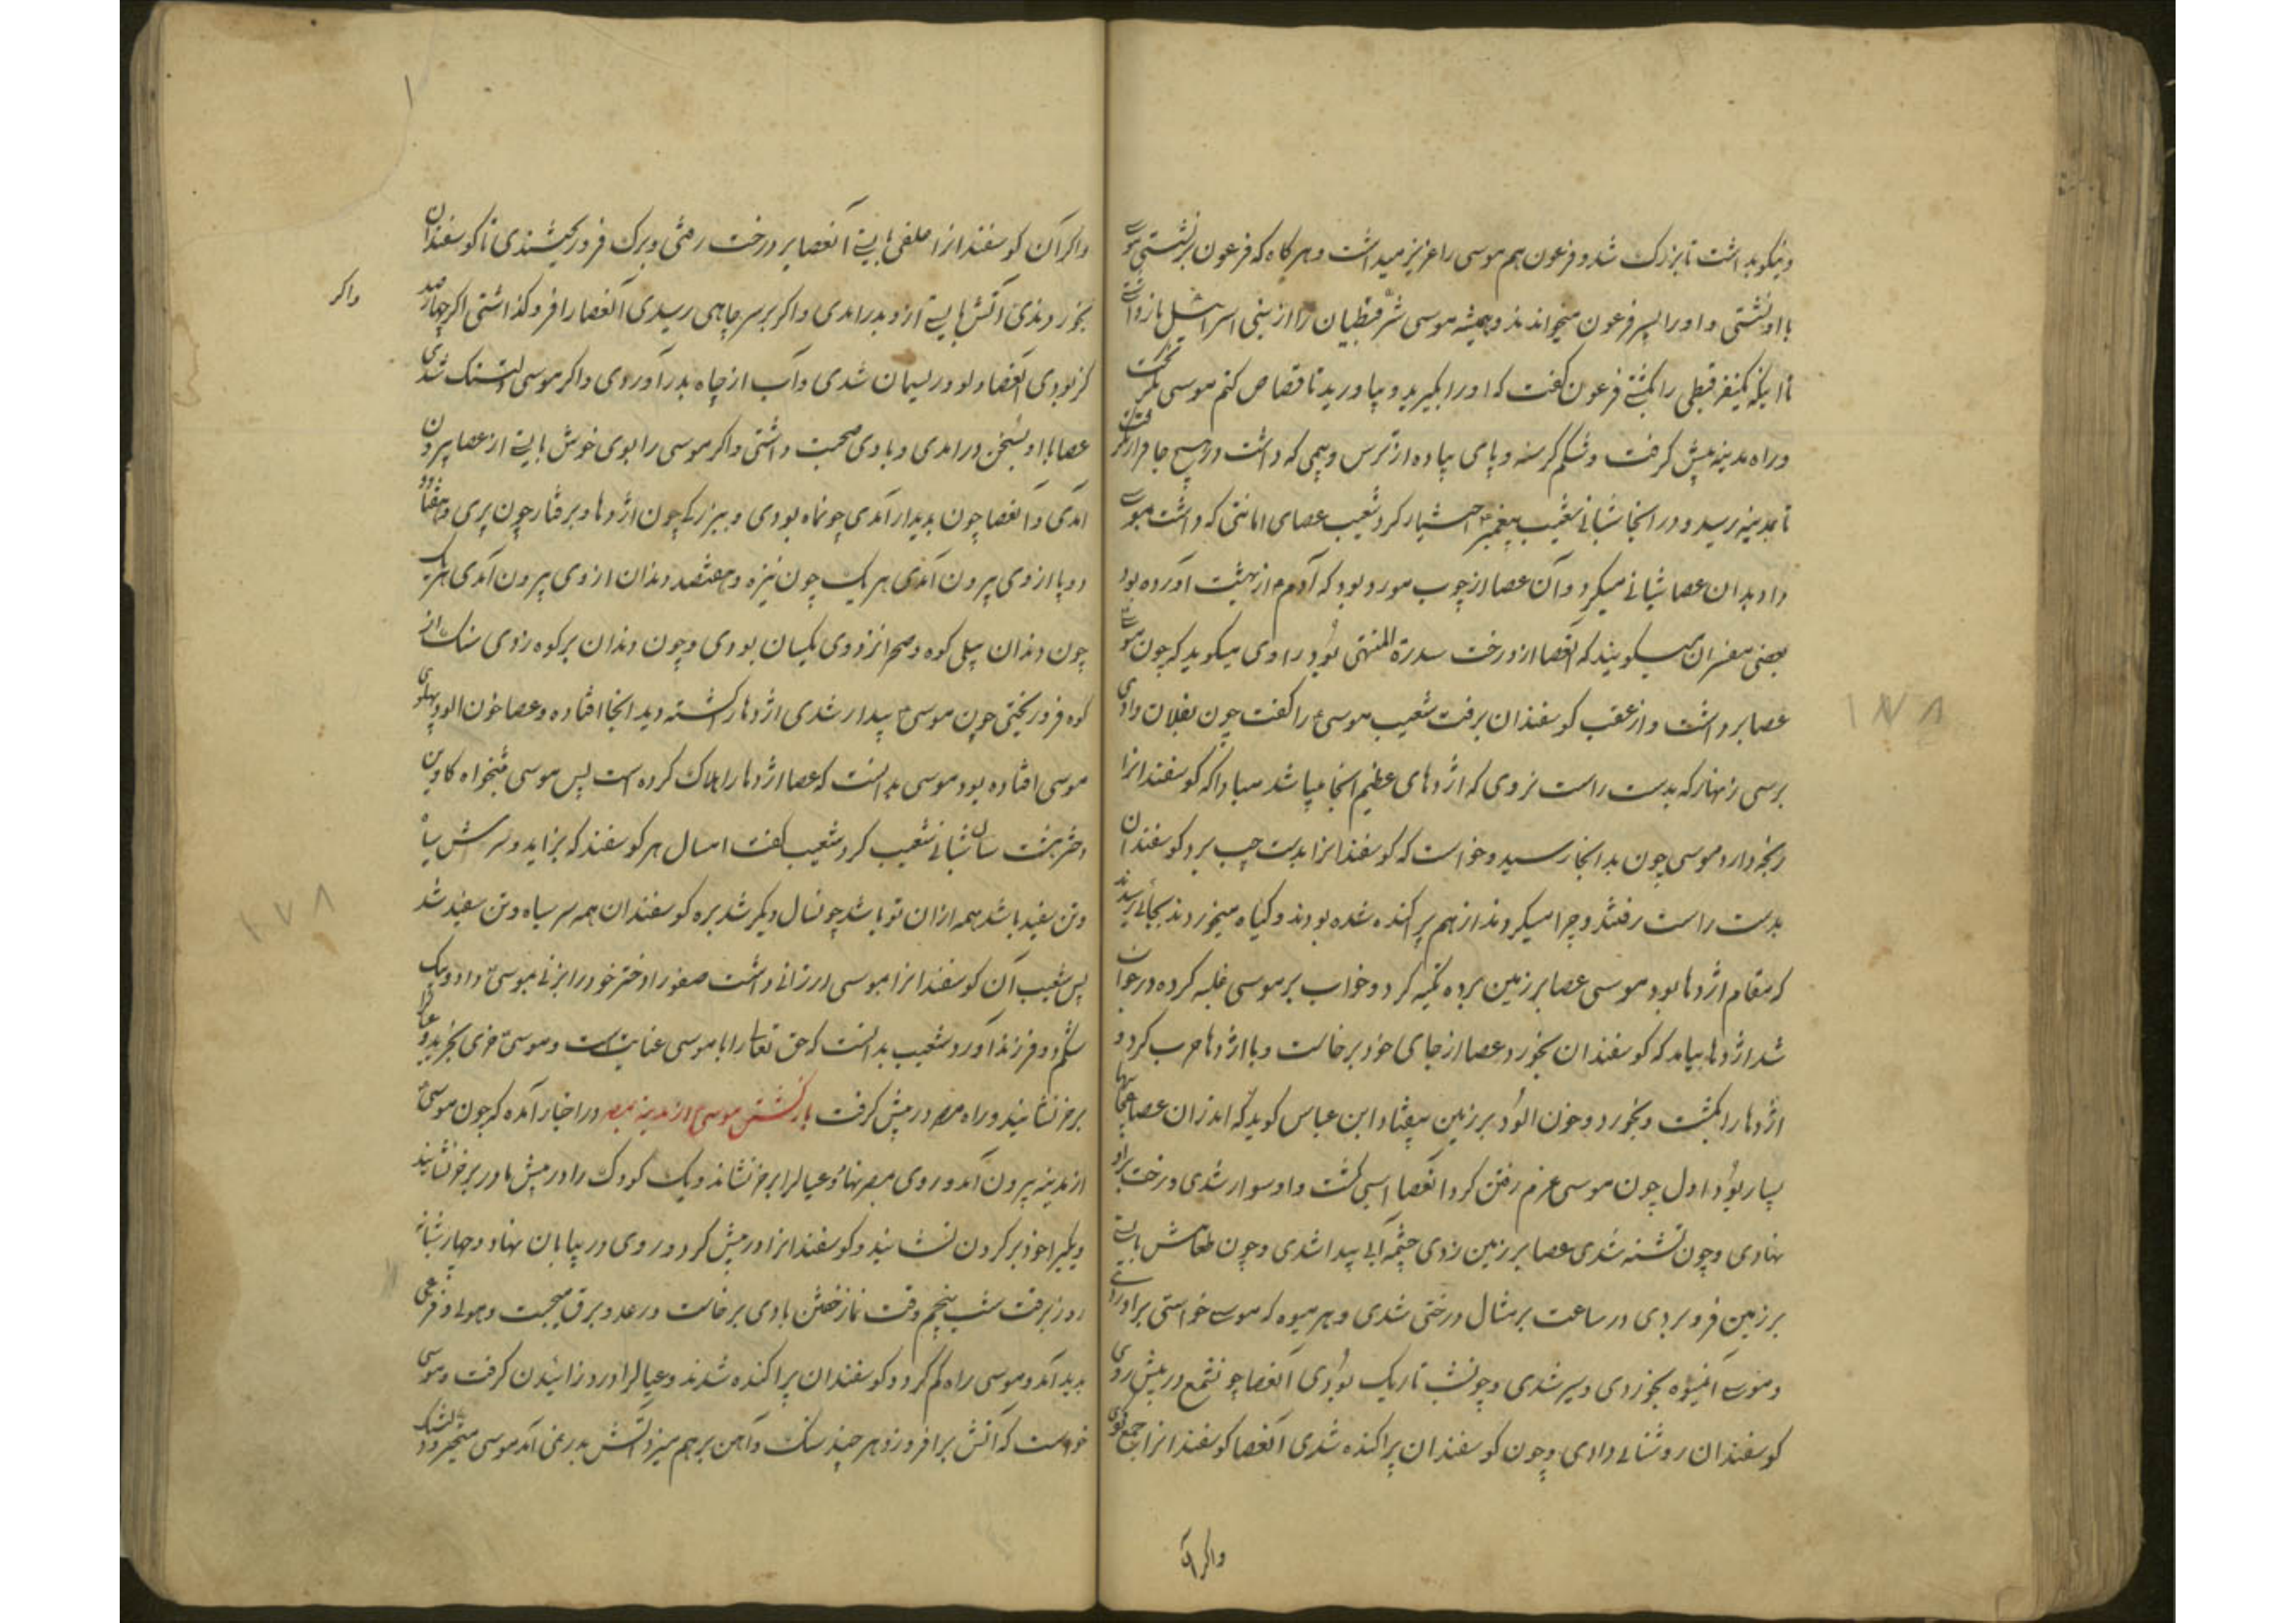 ونیکو بداشت تا بزرک شد و فرعون هم موسی را عزیز میداشت و هرکاه که فرعون برنشستی موسی
با او نشستی و او را پسر فرعون میخواندند و همیشه موسی شر قبطیان را از بنی اسرائیل بازداشتی
تا اینکه یکنفر قبطی را بکشت فرعون کفت که او را بکیرید و بیاورید تا قصاص کنم موسی بکریخت
و راه مدینه پیش کرفت و شکم کرسنه و پای پیاده از ترس و بیمی که داشت در هیچ جا قرار نکرفت
تا بمدینه رسید و در انجا شبانی شعیب پیغمبر اختیار کرد شعیب عصای امانتی که داشت بموسی
داد بدان عصا شبانی میکرد و آن عصا از چوب مورد بود که آدم از بهشت آورده بود
بعضی مفسران میکویند که آنعصا از درخت سدرة المنتهی بود راوی میکوید که چون موسی
عصا برداشت و از عقب کوسفندان برفت شعیب موسی را کفت چون بفلان وادی
برسی زنهار که بدست راست نروی که اژدهای عظیم انجا میباشد مبادا که کوسفندانرا
رنجه دارد موسی چون بدانجا رسید و خواست که کوسفندانرا بدست چپ برد کوسفندان
بدست راست رفتند و چرا میکردند از هم پراکنده شده بودند و کیاه میخوردند بجائی رسیدند
که مقام اژدها بود موسی عصا بر زمین برده تکیه کرد و خواب بر موسی غلبه کرده در خواب
شد اژدها بیامد که کوسفندان بخورد عصا از جای خود برخاست و با اژدها حرب کرد و
اژدها را بکشت و بخورد و خون الود بر زمین بیفتاد ابن عباس کوید که اندران عصا عجایبها
بسیار بود اول چون موسی عزم رفتن کرد انعصا اسپی کشت و او سوار شدی و رخت براو
نهادی و چون تشنه شدی عصا بر زمین زدی چشمه آبی پیدا شدی و چون طعامش بایستی
بر زمین فرو بردی در ساعت بر مثال درختی شدی و هر میوه که موسی خواستی براوردی
و موسی آنمیوه بخوردی و سیر شدی و چون شب تاریک بودی آنعصا چون شمع در پیش روی
کوسفندان روشنائی دادی و چون کوسفندان پراکنده شدی آنعصا کوسفندانرا جمع کردی
واکر آن
واکر آن کوسفندانرا علفی بایستی آنعصا بر درخت رفتی و برک فرو ریختندی تا کوسفندان
بخوردندی و آتش بایستی ازو بدر امدی واکر بر سر چاهی رسیدی آنعصا را فرو کذاشتی اکر چهارصد
کز بودی آنعصا دلو و ریسمان شدی و آب از چاه بدر آوردی واکر موسی دلتنک شدی
عصا با او بسخن درامدی و با وی صحبت داشتی واکر موسی را بوی خوش بایستی از عصا بیرون
آمدی و آنعصا چون پدیدار آمدی چون ماه بودی و ببزرکی چون اژدها و برفتار چون پری و هفتاد
دو پا از وی بیرون آمدی هر یک چون نیزه و هفتصد دندان از وی بیرون آمدی هریک
چون دندان پیل کوه و صحرا نزد وی یکسان بودی و چون دندان بر کوه زدی سنک از
کوه فرو ریختی چون موسی بیدار شدی اژدها را کشته دید انجا افتاده و عصا خون الود پهلوی
موسی افتاده بود موسی بدانست که عصا اژدها را هلاک کرده است پس موسی بنخواه کاوین
دختر هشت سال شبانی شعیب کرد شعیب کفت امسال هر کوسفند که بزاید و سرش سیاه
و تن سفید باشد همه از آن تو باشد چون سال دیکر شد بره کوسفندان همه سر سیاه و تن سفید شد
پس شعیب آن کوسفندانرا بموسی ارزانی داشت صفورا دختر خود را بزنی بموسی داد و بیک
شکم دو فرزند آورد شعیب بدانست که حق تعالی را با موسی عنایت است و موسی خری بخرید و عیالرا
بر خر نشانید و راه مصر در پیش کرفت بازکشتن موسی از مدینه بمصر در اخبار آمده که چون موسی
از مدینه بیرون آمد و روی بمصر نهاد و عیالرا بر خر نشاند و یک کودک را در پیش مادر بر خر نشانید
و دیکریرا خود بر کردن نشانید و کوسفندانرا در پیش کرد و روی در بیابان نهاد و چهار شبانه
روز برفت شب پنجم وقت نماز خفتن بادی برخاست و رعد و برق بجست و هولی و فزعی
پدید آمد و موسی راه کم کرد و کوسفندان پراکنده شدند و عیالرا درد زائیدن کرفت و موسی
خواست که آتش برافروزد هر چند سنک و آهن برهم میزد آتش بدر نمی آمد موسی متحیر و دلتنک
واکر
۱۷۸
۱۷۸